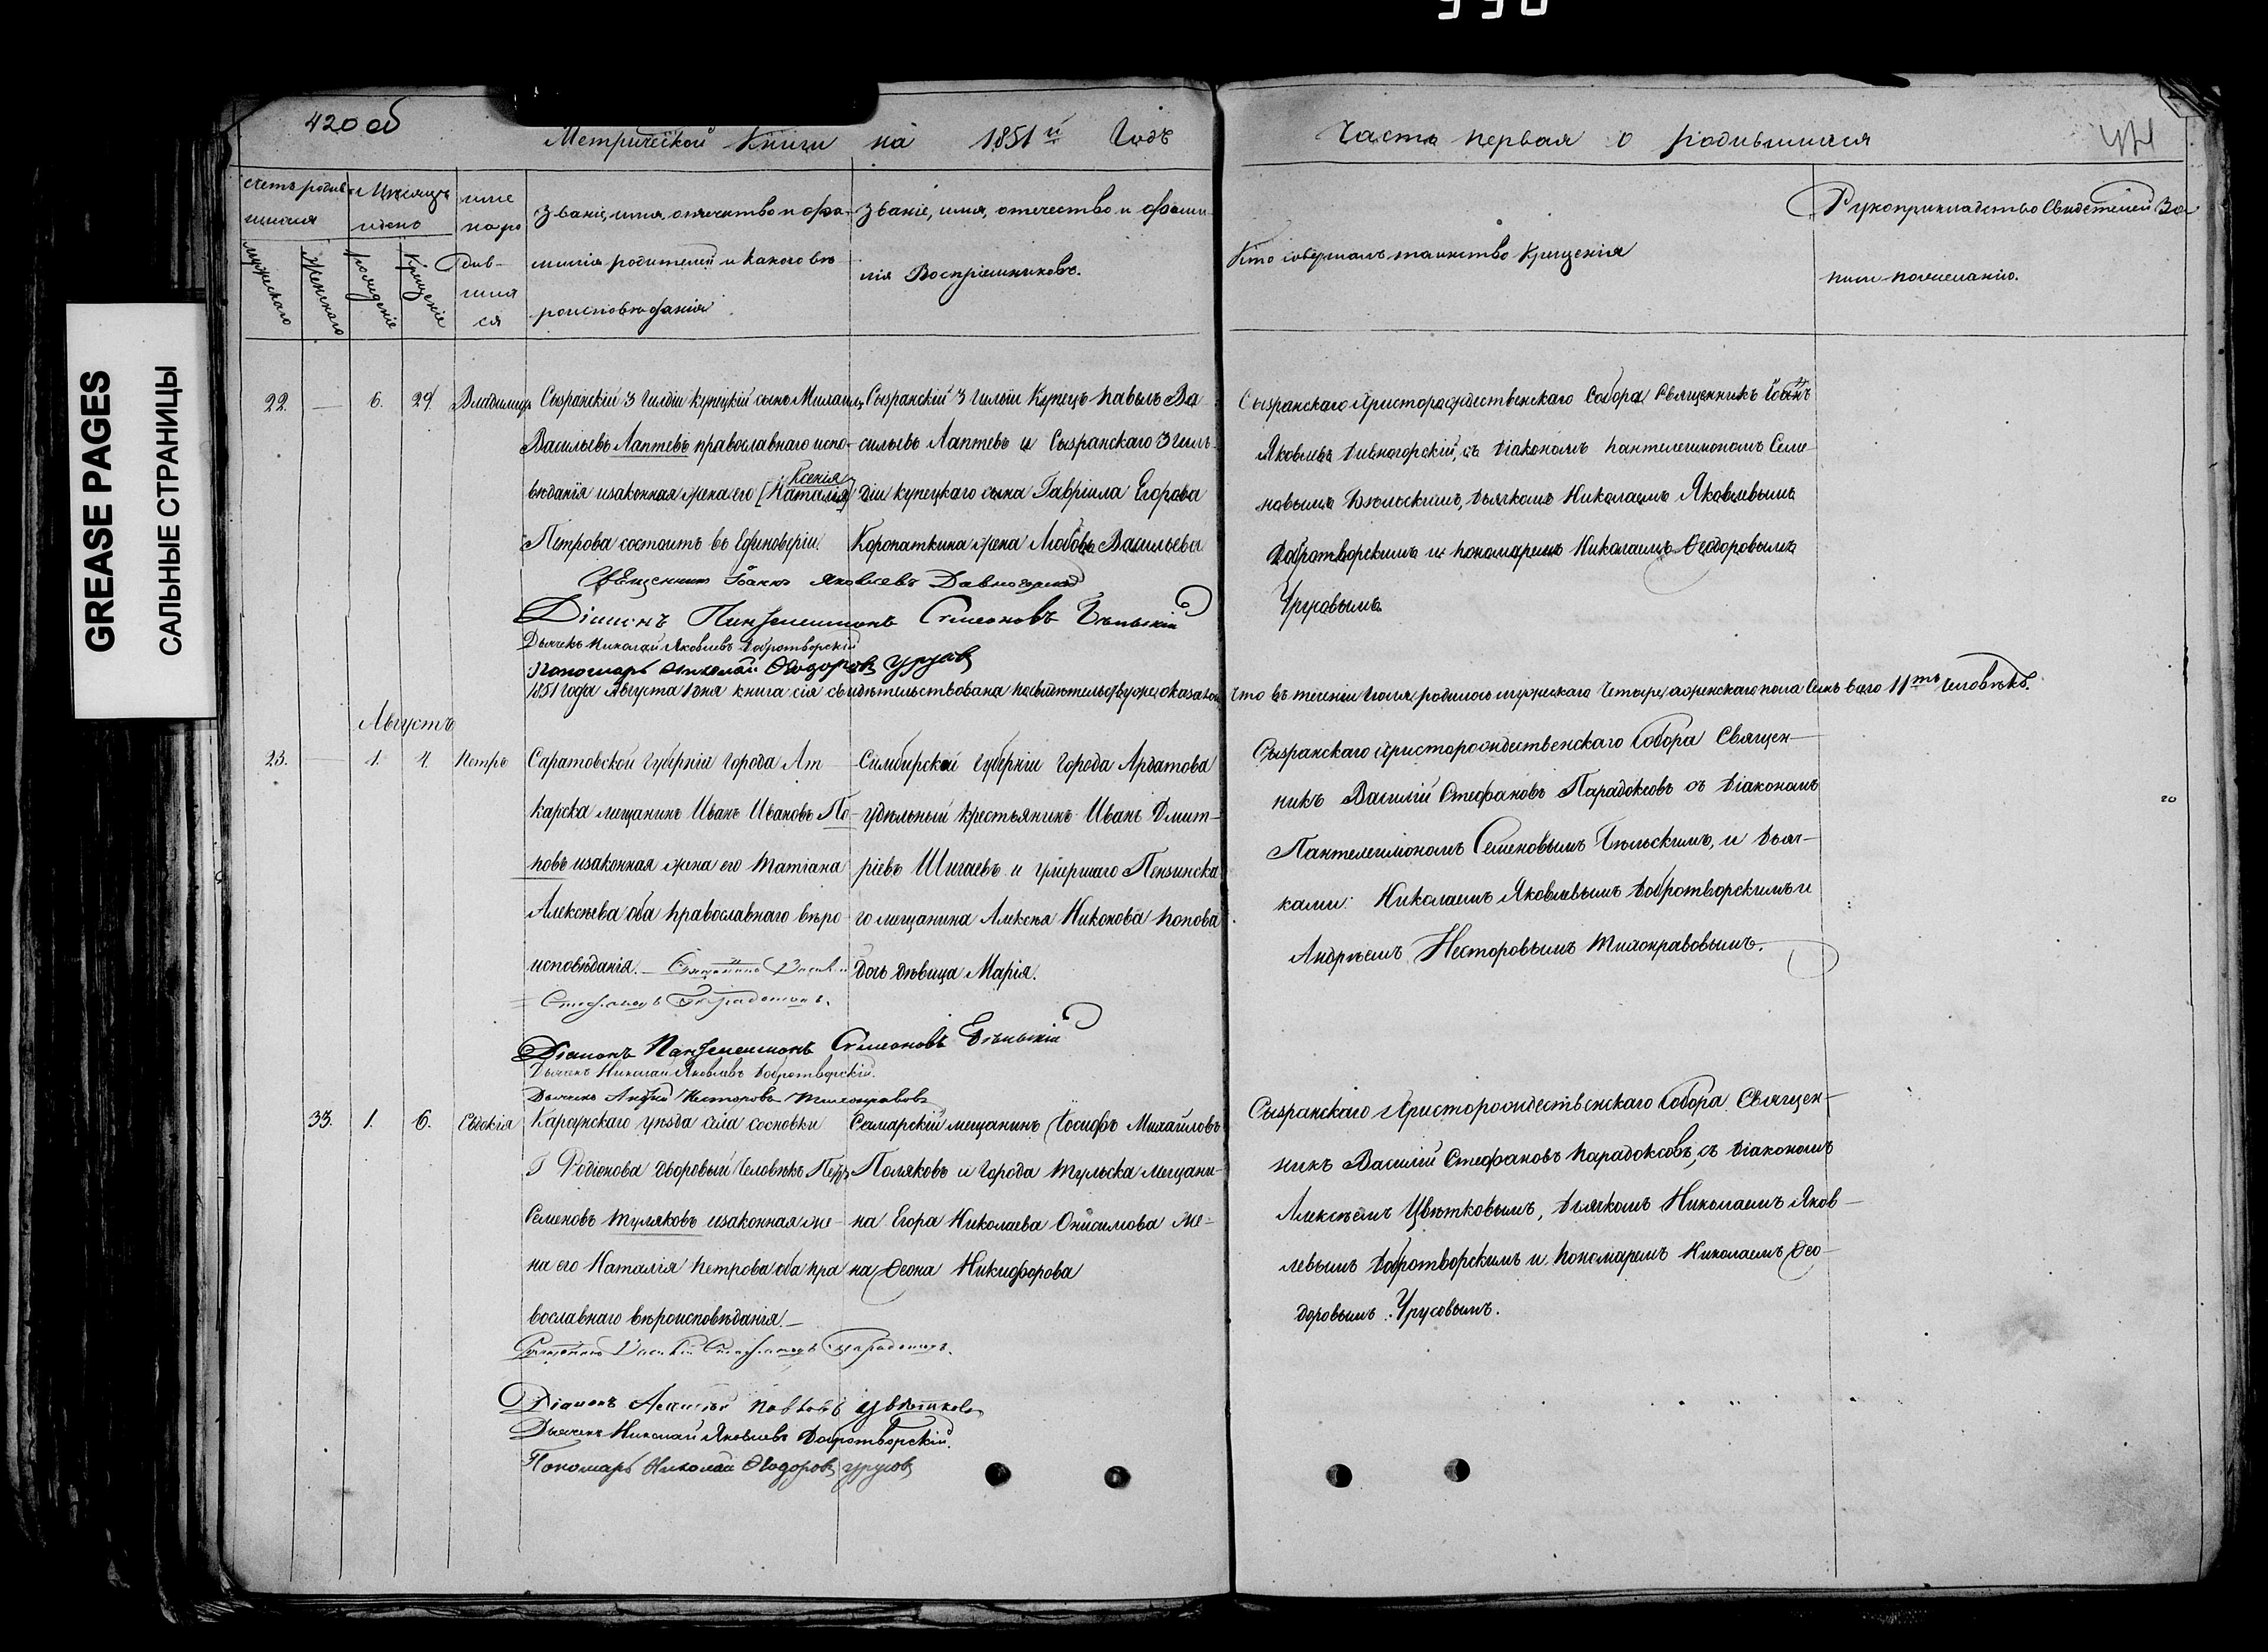 420 об
Метрической Книги на 1851й Годъ
Часть первая о родившихся
счетъ родив-
шихся
Мѣсяцъ
и день
имѣ
наро
див-
шия
ся
мужескаго
женскаго
рожденіе
крещеніе
Званіе, имя, отечество и фа-
милія родителей и какого вѣ
роисповѣданія
Званіе, имя, отечество и фами-
лія Воспріемниковъ.
Кто совершалъ таинство Крещенія
Рукоприкладство Свидетелей За
писи по желанію.
GREASE PAGES
САЛЬНЫЕ СТРАНИЦЫ
22. — 6. 29. Владимиръ
Сызранскій 3 Гилдіи купецкій сынъ Михаилъ
Васильевъ Лаптевъ православнаго испо-
вѣданія изаконная жена его [Наталія]
Ксенія
Петрова состоитъ въ Единоверіи.
Сызранскій 3 гилдіи Купецъ Павелъ Ва
сильевъ Лаптевъ и Сызранскаго 3 гиль
діи купецкаго сына Гавріила Егорова
Коропаткина жена Любовь Васильева
Сызранскаго Христорождественскаго Собора Священникъ Іоаннъ
Яковлевъ Дивногорскій, съ діакономъ Пантелеимономъ Семе-
новымъ Бѣльскимъ, дьячкомъ Николаемъ Яковлевымъ
Добротворскимъ и пономаремъ Николаемъ Ѳеодоровымъ
Урусовымъ
Священникъ Іоаннъ Яковлевъ Дивногорскій
Діаконъ Пантелеимонъ Симеоновъ Бѣльскій
Дьячекъ Николай Яковлевъ Добротворскій
Пономарь Николай Ѳеодоровъ Урусовъ
1851 года Августа 1 дня книга сія свидѣтельствована
что въ теченіи Іюля родилось мужескаго Четыре, а женскаго пола Семь всего 11ть Человѣкъ.
Августъ
23. — 1. 4. Петръ
Саратовской Губерніи города Ат
карска мещанинъ Иванъ Ивановъ По-
повъ изаконная жена его Татіана
Алексѣева оба православнаго вѣро
исповѣданія. — Священникъ Василій
Стефановъ Парадоксовъ.
Симбирской Губерніи города Ардатова
удѣльный крестьянинъ Иванъ Дмит-
ріевъ Шигаевъ и умершаго Пензинска
го мещанина Алексѣя Никонова Попова
дочь дѣвица Марія.
Сызранскаго Христорождественскаго Собора Священ-
никъ Василій Стефановъ Парадоксовъ съ діакономъ
Пантелеимономъ Семеновымъ Бѣльскимъ, и дьяч-
ками: Николаемъ Яковлевымъ Добротворскимъ и
Андрѣемъ Несторовымъ Тихонравовымъ.
Діаконъ Пантелеимонъ Симеоновъ Бѣльскій
Дьячекъ Николай Яковлевъ Добротворскій.
Дьячекъ Андрей Несторовъ Тихонравовъ
33. 1. 6. Евдокія
Карсунскаго уѣзда села Сосновки
Г Родіонова дворовый Человѣкъ Петръ
Семеновъ Туляковъ изаконная же-
на его Наталія Петрова оба пра
вославнаго вѣроисповѣданія. —
Самарскій мещанинъ Іосифъ Михайловъ
Поляковъ и города Тульска Мещани-
на Егора Николаева Онисимова же-
на Ѳеона Никифорова
Сызранскаго Христорождественскаго Собора Священ-
никъ Василій Стефановъ Парадоксовъ, съ діакономъ
Алексѣемъ Цвѣтковымъ, дьячкомъ Николаемъ Яков-
левымъ Добротворскимъ и пономаремъ Николаемъ Ѳео-
доровымъ Урусовымъ.
Священникъ Василій Стефановъ Парадоксовъ.
Діаконъ Алексѣй Цвѣтковъ
Дьячекъ Николай Яковлевъ Добротворскій.
Пономарь Николай Ѳеодоровъ Урусовъ